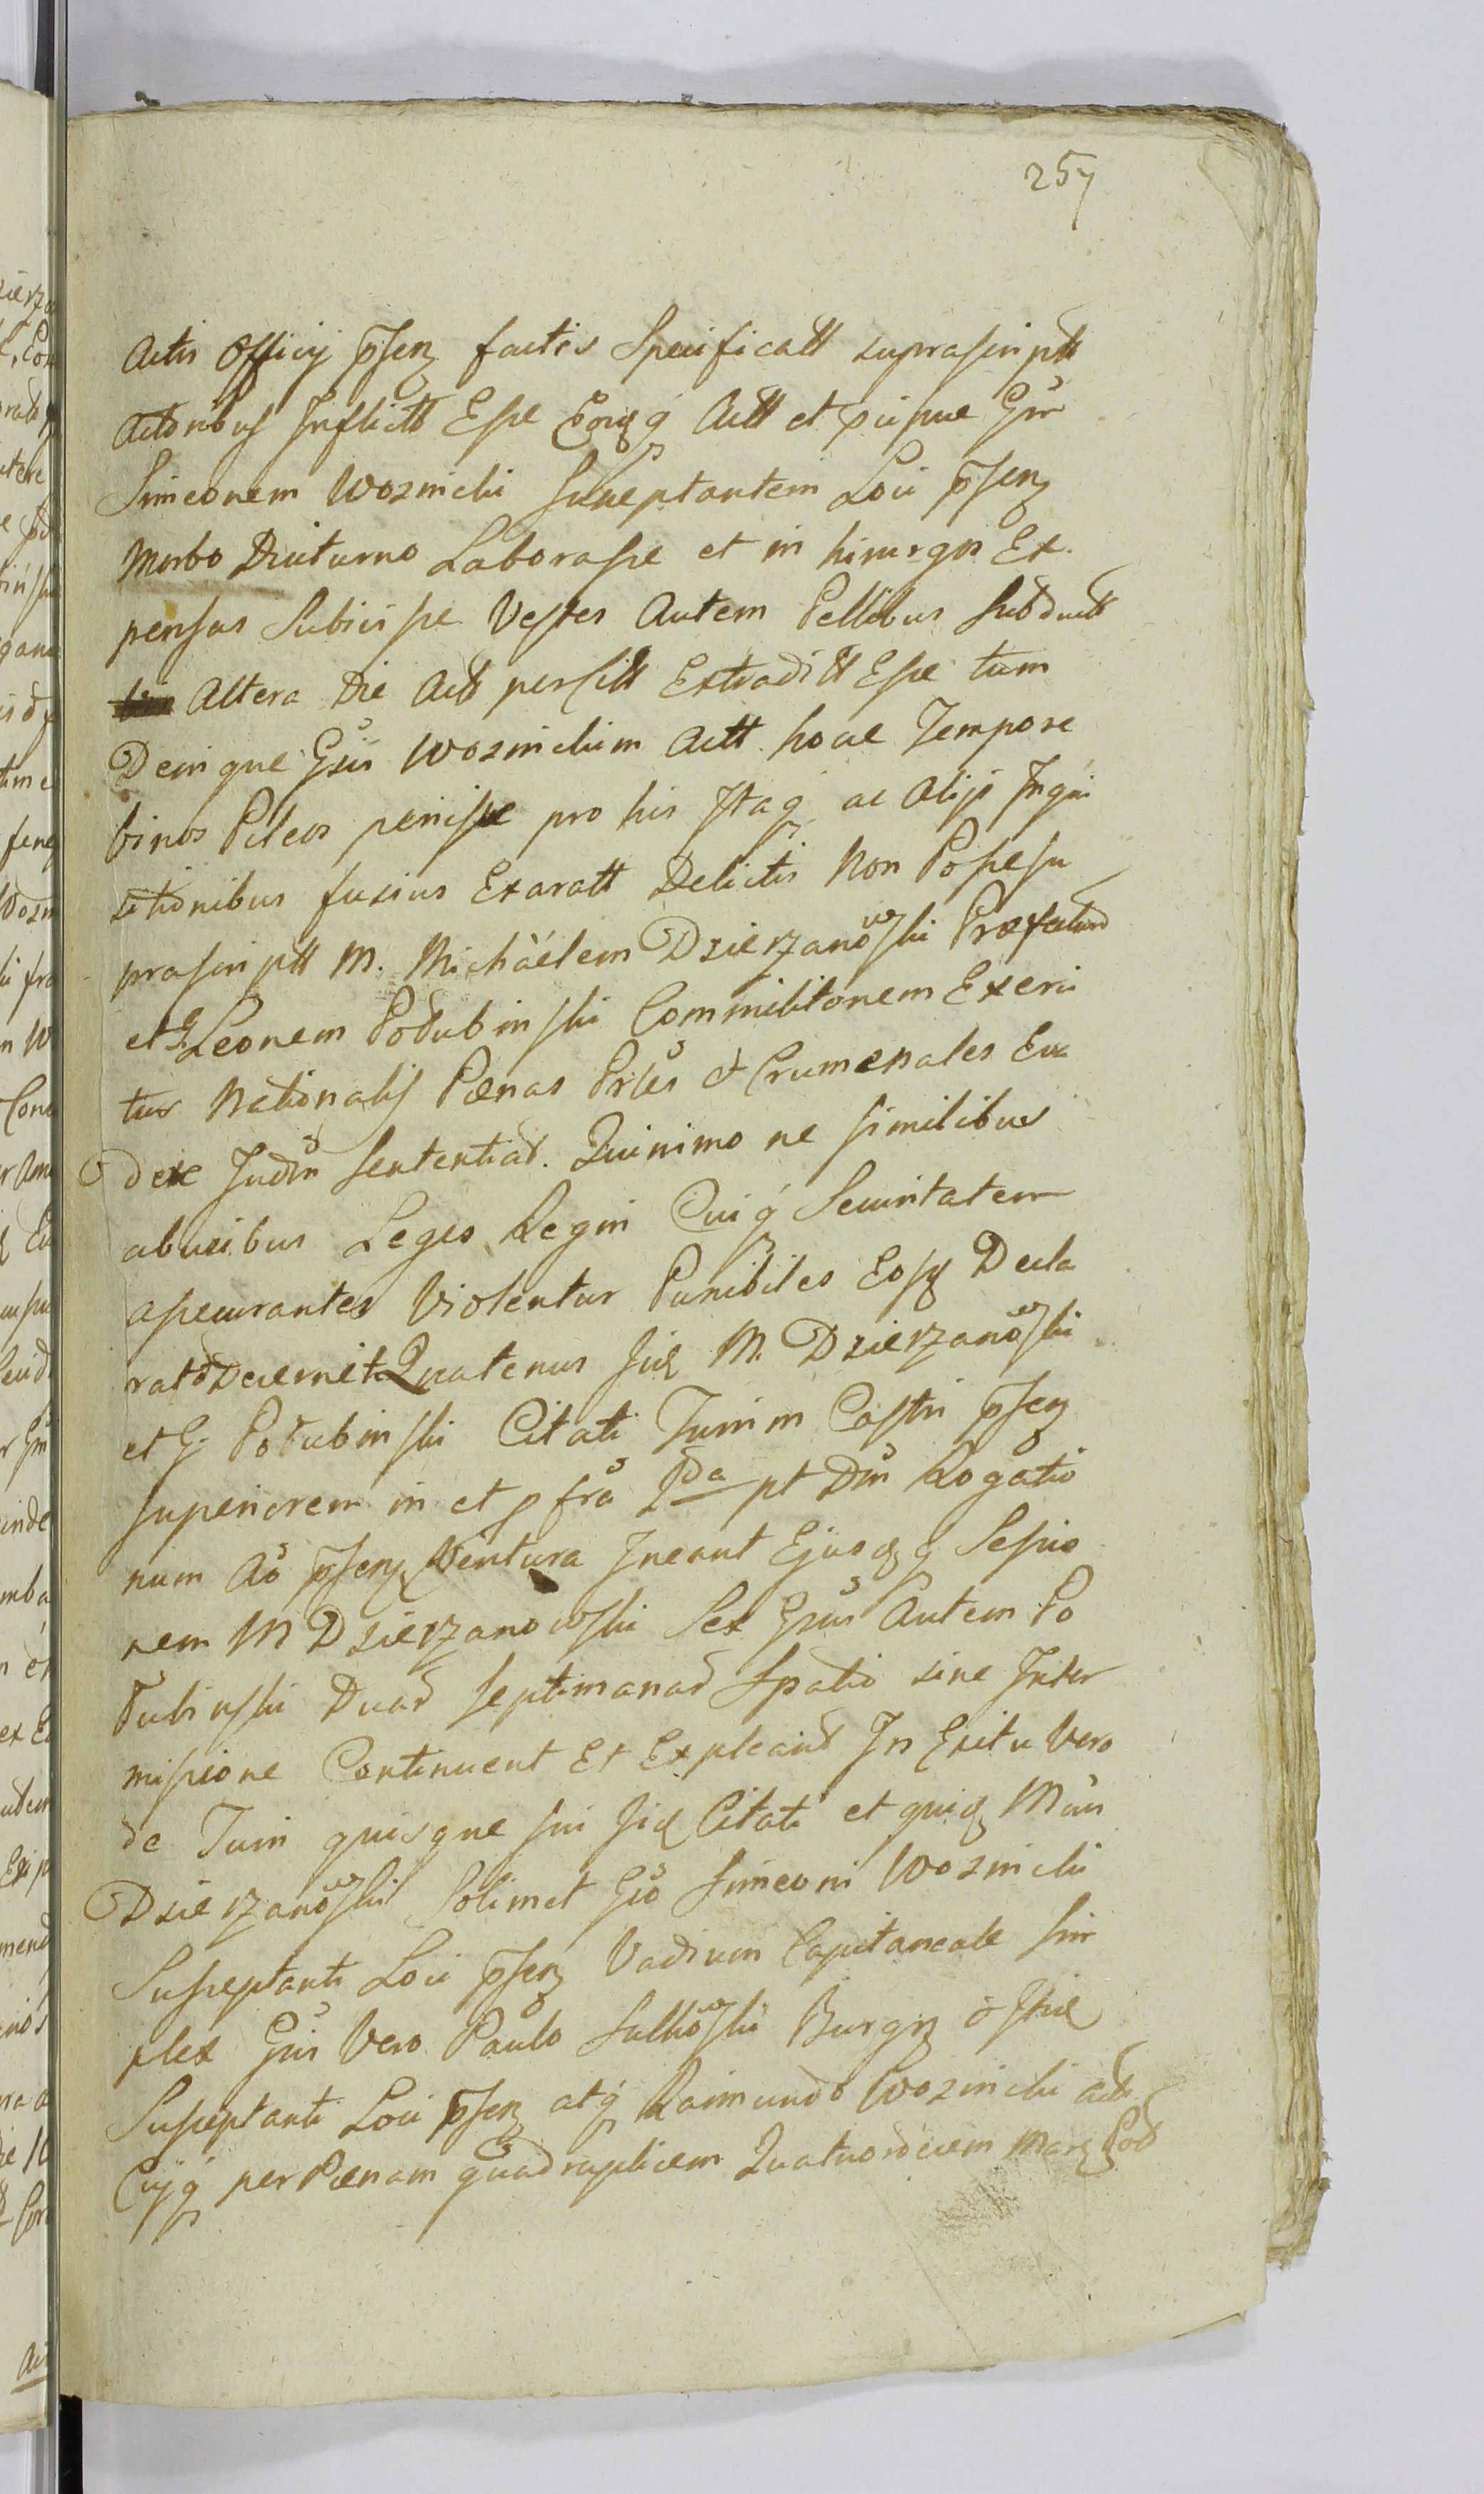 257
Actis Officij pñsen factis Specificatt suprascriptt
Actoribus Inflictt Esse Eorqʒ Actt et
Simeonem Woznicki Susceptantem Loci pñsen
Morbo Diuturno Laborasse et in hirurgos Ex.
pensas Subiisse Vestes Autem Pellibus Subductt
Altera Die Actt Extraditt Esse tum
Denique Gsũs Woznickium Actt hocce Tempore
binos Pileos perisse pro his Itaqʒ ac Alijs Inqui
sitionibus fusius Exaratt Delictis Non Posse su
prascriptt M. Michäelem Dzierzanowski Præfectum
et G. Leonem Podubinski Commilitonem Exerci
tus Nationalis Pænas Prles et Crumenales Eva
dere Judm sententiad. Quinimo ne similibus
abusibus Leges Regni Cuiqʒ Securitatem
assecurantes Violentur Punibiles Eosq Decla
rato Decernit Quatenus M. Dzierzanowski
et G. Podubinski Citati Turrim Castri pñsen
superiorem in et p fra 2da pt Dm Rogatio
num Ao pñsen Ventura Ineant Ejusqʒ Sessio
nem M Dzierzanowski Sex Gsus Autem Po
dubinski Duad septimanad Spatio sine Inter
missione Continuent Et Expleant In Exitu Vero
de Turri quisque sui Citati et quid
Dzierzanowski Solimet Gso Simeoni Woznicki
Susceptanti Loci pñsen Vadium Capitaneale sim
plex Gsis Vero Paulo Sulkowski Burgr
Susceptanti Loci pñsen atqʒ Raimundo Woznicki
Cujqʒ per Pænam quadruplicem Quatuordecem Marc Pod